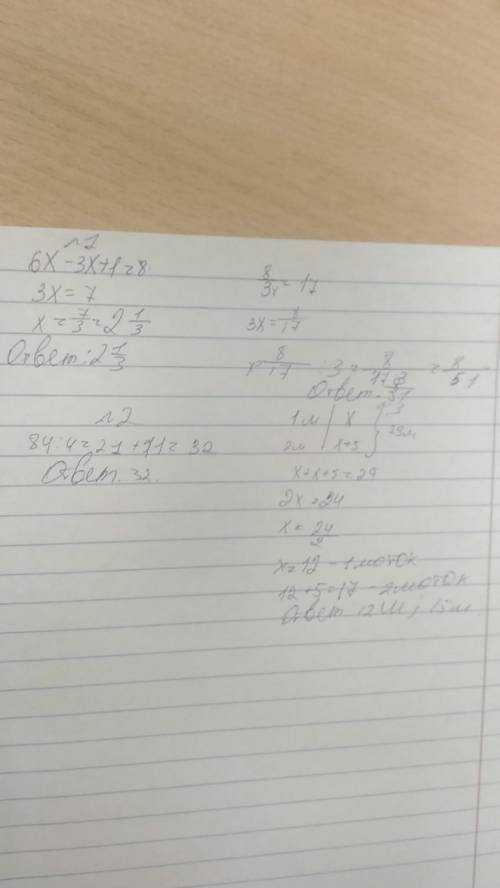 №1
6x - 3x + 1 = 8
3x = 7
x = 7/3 = 2 1/3
Ответ: 2 1/3
№2
84 : 4 = 21 + 11 = 32
Ответ. 32.
8/3x = 17
3x = 8/17
8/17 : 3 = 8/17·3 = 8/51
Ответ. 8/51
1м | x
2м | x+5 } 29м
x+x+5=29
2x=24
x = 24/2
x=12 - 1 моток
12+5=17 - 2 моток
Ответ 12 м,